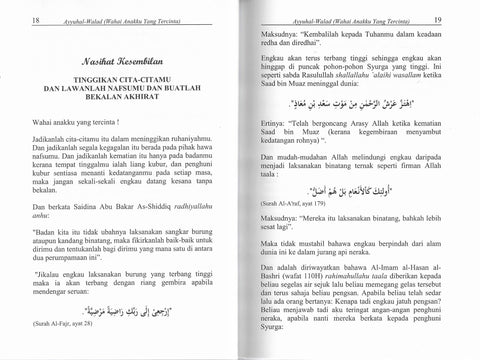 18
Ayyuhal-Walad (Wahai Anakku Yang Tercinta)
Nasihat Kesembilan
TINGGIKAN CITA-CITAMU
DAN LAWANLAH NAFSUMU DAN BUATLAH
BEKALAN AKHIRAT
Wahai anakku yang tercinta !
Jadikanlah cita-citamu itu dalam meninggikan ruhaniyahmu.
Dan jadikanlah segala kegagalan itu berada pada pihak hawa
nafsumu. Dan jadikanlah kematian itu hanya pada badanmu
kerana tempat tinggalmu ialah liang kubur, dan penghuni
kubur sentiasa menanti kedatanganmu pada setiap masa,
maka jangan sekali-sekali engkau datang kesana tanpa
bekalan.
Dan berkata Saidina Abu Bakar As-Shiddiq radhiyallahu
anhu:
"Badan kita itu tidak ubahnya laksanakan sangkar burung
ataupun kandang binatang, maka fikirkanlah baik-baik untuk
dirimu dan tentukanlah bagi dirimu yang mana satu di antara
dua perumpamaan ini".
"Jikalau engkau laksanakan burung yang terbang tinggi
maka ia akan terbang dengan riang gembira apabila
mendengar seruan:
"إِرْجِعِيْ إِلَى رَبِّكِ رَاضِيَةً مَرْضِيَّةً".
(Surah Al-Fajr, ayat 28)
Ayyuhal-Walad (Wahai Anakku Yang Tercinta)
19
Maksudnya: "Kembalilah kepada Tuhanmu dalam keadaan
redha dan diredhai".
Engkau akan terus terbang tinggi sehingga engkau akan
hinggap di puncak pohon-pohon Syurga yang tinggi. Ini
seperti sabda Rasulullah shallallahu 'alaihi wasallam ketika
Saad bin Muaz meninggal dunia:
"إِهْتَزَّ عَرْشُ الرَّحْمٰنِ مِنْ مَوْتِ سَعْدِ بْنِ مُعَاذٍ".
Ertinya: "Telah bergoncang Arasy Allah kerana kematian
Saad bin Muaz (kerana kegembiraan menyambut
kedatangan rohnya) ".
Dan mudah-mudahan Allah melindungi engkau daripada
menjadi laksanakan binatang ternak seperti firman Allah
taala :
"أُولٰئِكَ كَالْأَنْعَامِ بَلْ هُمْ أَضَلُّ".
(Surah Al-A'raf, ayat 179)
Maksudnya: "Mereka itu laksanakan binatang, bahkah lebih
sesat lagi".
Maka tidak mustahil bahawa engkau berpindah dari alam
dunia ini ke dalam jurang api neraka.
Dan adalah diriwayatkan bahawa Al-Imam al-Hasan al-
Bashri (wafat 110H) rahimahullahu taala diberikan kepada
beliau segelas air sejuk lalu beliau memegang gelas tersebut
dan terus sahaja beliau pengsan. Apabila beliau telah sedar
lalu ada orang bertanya: Kenapa tadi engkau jatuh pengsan?
Beliau menjawab tadi aku teringat angan-angan penghuni
neraka, apabila nanti mereka berkata kepada penghuni
Syurga: